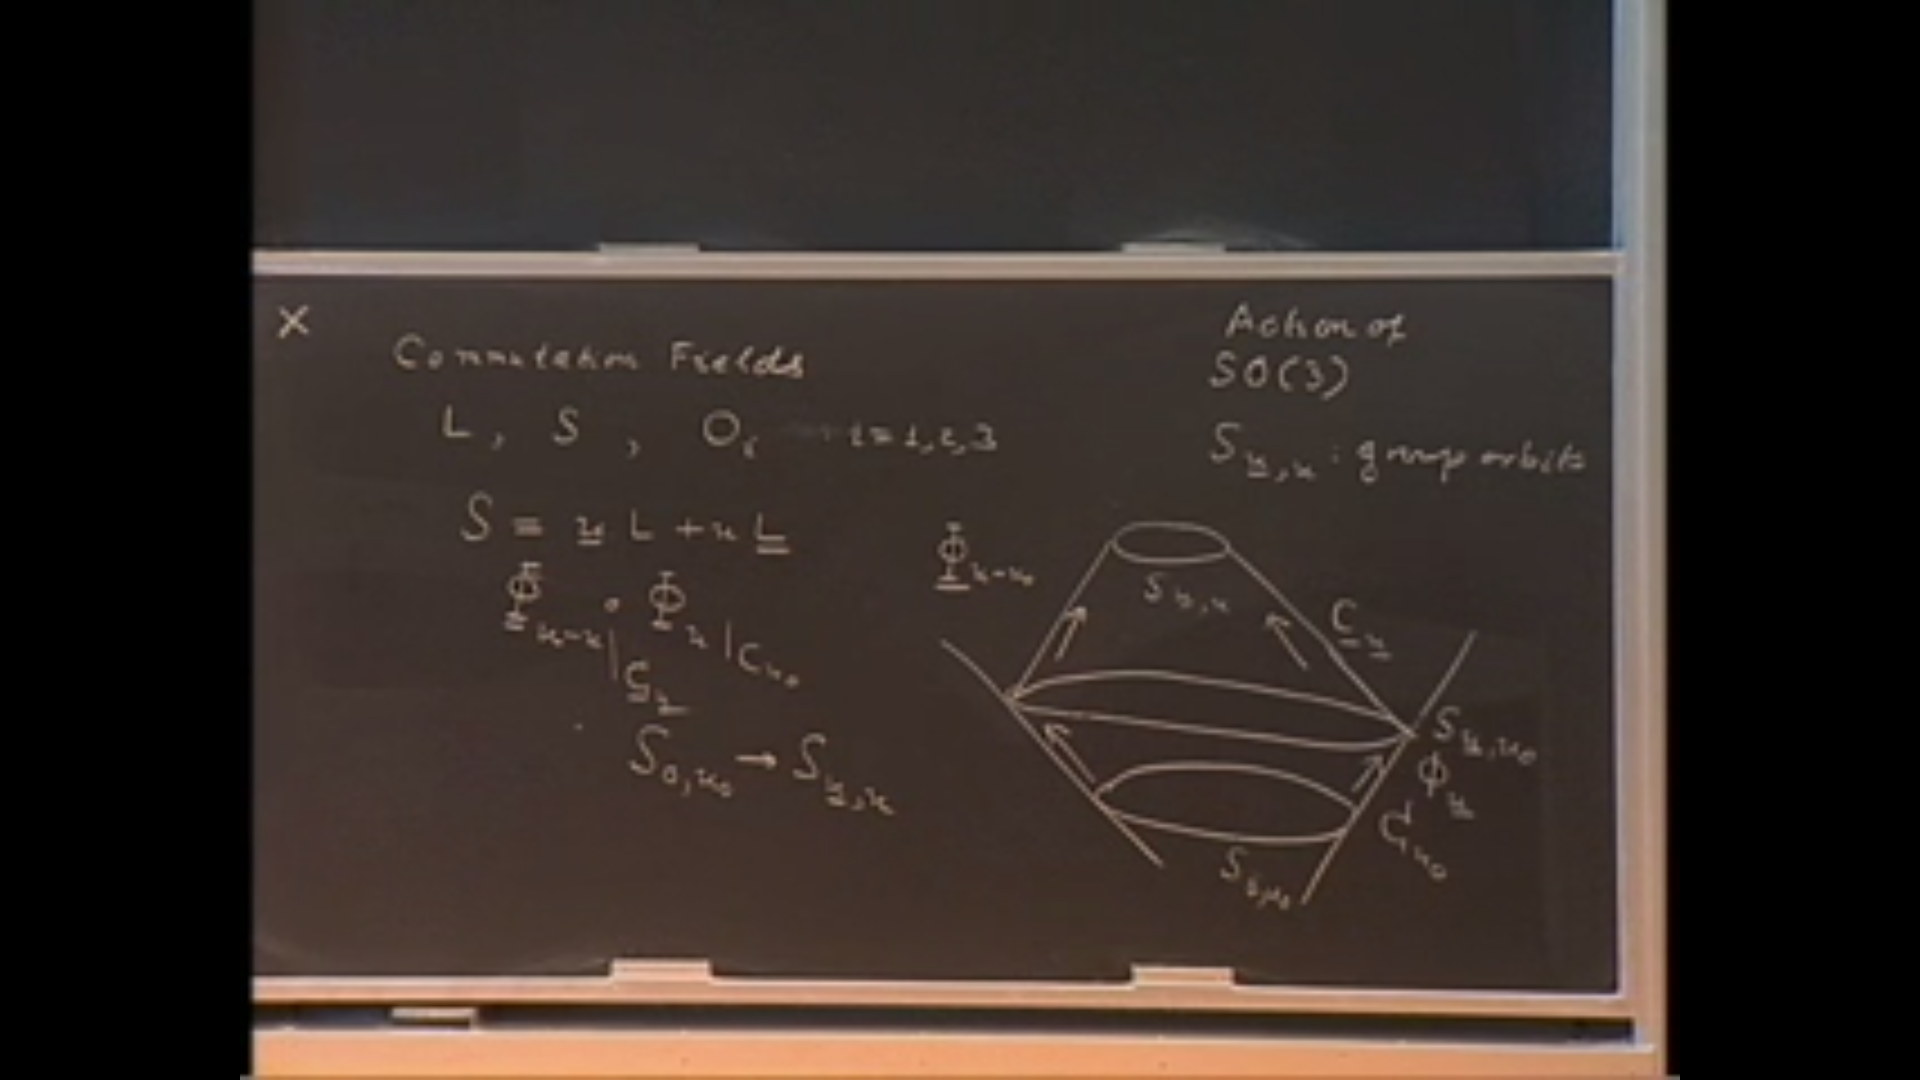 X
Commutation Fields
L, S, O_i i=1,2,3
S = u̲ L + u L̲
Φ̲_{u-u_0}|_{C̲_{u̲}} ∘ Φ_{u̲}|_{C_{u_0}}
S_{0,u_0} → S_{u̲,u}
Action of
SO(3)
S_{u̲,u} : group orbits
Φ̲_{u-u_0}
S_{u̲,u}
C̲_{u̲}
S_{u̲,u_0}
Φ_{u̲}
C_{u_0}
S_{0,u_0}